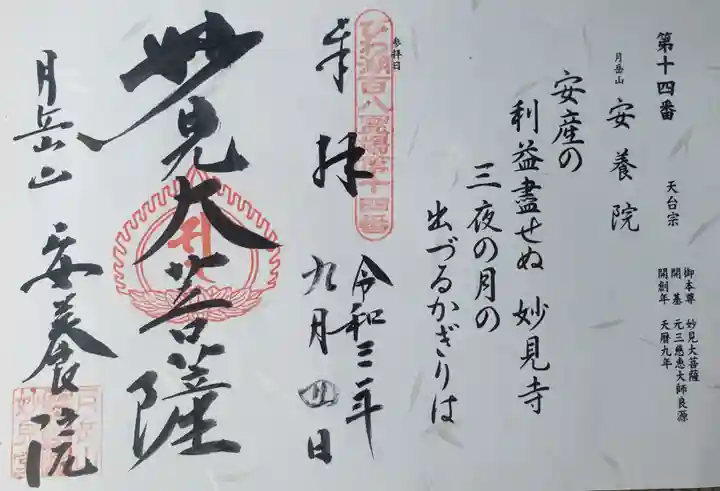 第十四番
天台宗
月岳山
安養院
御本尊 妙見大菩薩
開基 元三慈恵大師良源
開創年 天暦九年
安産の
利益盡せぬ 妙見寺
三夜の月の
出づるかぎりは
参拝日
びわ湖百八霊場第十四番
奉拝
令和三年
九月四日
妙見大菩薩
月岳山 安養院